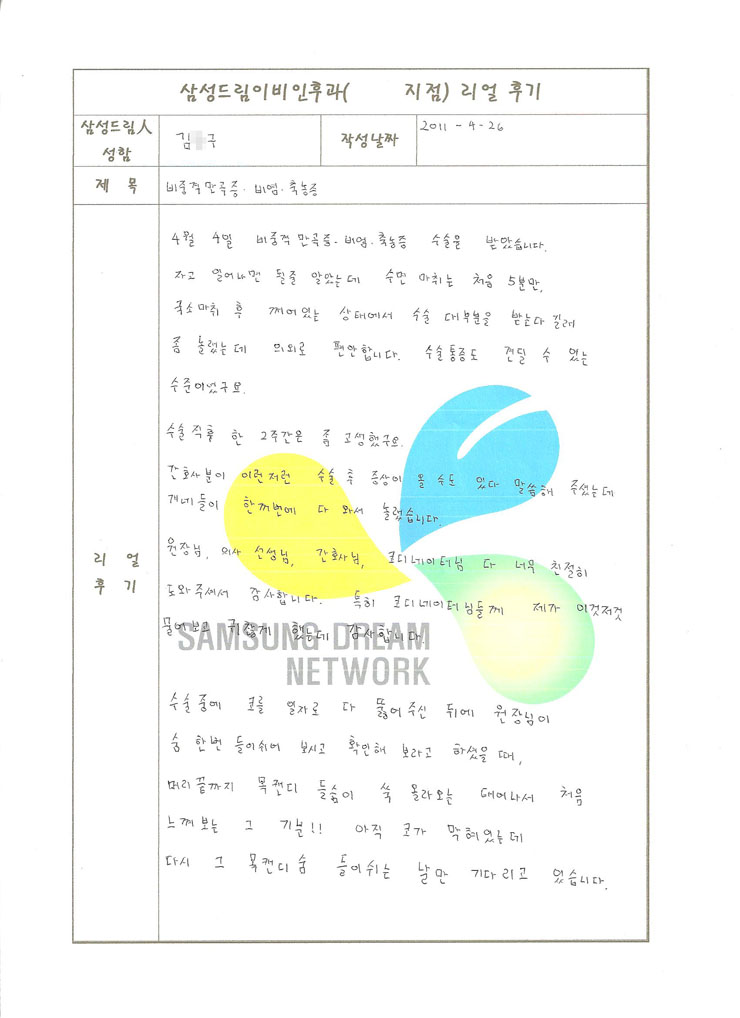 삼성드림이비인후과( 지점) 리얼 후기
삼성드림人 성함
김 구
작성날짜
2011 - 4 - 26
제 목
비중격만곡증. 비염. 축농증
리 얼
후 기
4월 4일 비중격 만곡증. 비염. 축농증 수술을 받았습니다.
자고 일어나면 될줄 알았는데 수면 마취는 처음 5분만,
국소마취 후 깨어있는 상태에서 수술 대부분을 받는다길래
좀 놀랐는데 의외로 편안합니다. 수술통증도 견딜 수 있는
수준이었구요.
수술 직후 한 2주간은 좀 고생했구요.
간호사분이 이런저런 수술 후 증상이 올 수도 있다 말씀해 주셨는데
걔네들이 한꺼번에 다 와서 놀랐습니다.
원장님, 의사 선생님, 간호사님, 코디네이터님 다 너무 친절히
도와주셔서 감사합니다. 특히 코디네이터님들께 제가 이것저것
물어보고 귀찮게 했는데 감사합니다.
SAMSUNG DREAM
NETWORK
수술 중에 코를 일자로 다 뚫어주신 뒤에 원장님이
숨 한번 들이쉬어 보시고 확인해 보라고 하셨을 때,
머리끝까지 목캔디 들숨이 쑥 올라오는 태어나서 처음
느껴보는 그 기분!! 아직 코가 막혀있는데
다시 그 목캔디 숨 들이쉬는 날만 기다리고 있습니다.